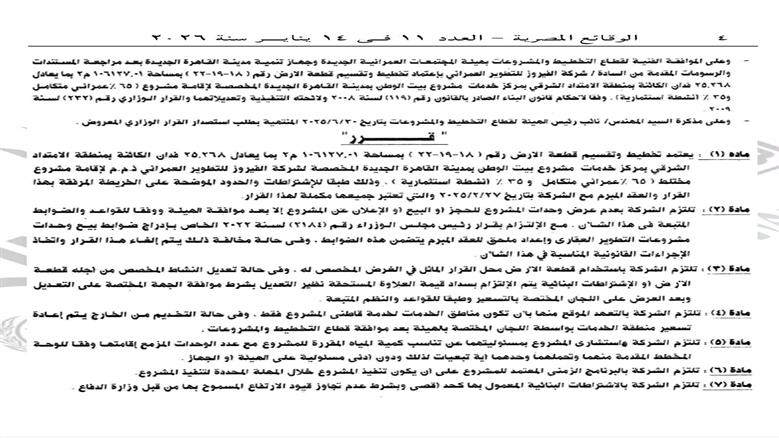 ٤ الوقائع المصرية – العدد ١١ فى ١٤ يناير سنة ٢٠٢٦
- وعلى الموافقة الفنية لقطاع التخطيط والمشروعات بهيئة المجتمعات العمرانية الجديدة وجهاز تنمية مدينة القاهرة الجديدة بعد مراجعة المستندات
والرسومات المقدمة من السادة / شركة الفيروز للتطوير العمراني بإعتماد تخطيط وتقسيم قطعة الارض رقم ( ١٨-١٩-٢٢) بمساحة ١٠٦١٢٧.٠١ م٢ بما يعادل
٢٥.٢٦٨ فدان الكائنة بمنطقة الامتداد الشرقي بمركز خدمات مشروع بيت الوطن بمدينة القاهرة الجديدة المخصصة لإقامة مشروع ( ٦٥٪ عمراني متكامل
و٣٥ ٪ أنشطة استثمارية) . وفقا لاحكام قانون البناء الصادر بالقانون رقم (١١٩) لسنة ٢٠٠٨ ولائحته التنفيذية وتعديلاتهما والقرار الوزاري رقم (٢٣٢) لسنة
٢٠٠٩
- وعلى مذكرة السيد المهندس/ نائب رئيس الهيئة لقطاع التخطيط والمشروعات بتاريخ ٢٠٢٥/٦/٣٠ المنتهية بطلب استصدار القرار الوزاري المعروض .
" قـــرر "
مادة (١) : يعتمد تخطيط وتقسيم قطعة الارض رقم ( ١٨-١٩-٢٢) بمساحة ١٠٦١٢٧.٠١ م٢ بما يعادل ٢٥.٢٦٨ فدان الكائنة بمنطقة الامتداد
الشرقي بمركز خدمات مشروع بيت الوطن بمدينة القاهرة الجديدة المخصصة لشركة الفيروز للتطوير العمراني ذ.م.م لإقامة مشروع
مختلط ( ٦٥٪ عمراني متكامل و ٣٥ ٪ أنشطة استثمارية ) . وذلك طبقا للإشتراطات والحدود الموضحة على الخريطة المرفقة بهذا
القرار والعقد المبرم مع الشركة بتاريخ ٢٠٢٥/٢/٢٧ والتي تعتبر جميعها مكملة لهذا القرار.
مادة (٢) : تلتزم الشركة بعدم عرض وحدات المشروع للحجز أو البيع أو الإعلان عن المشروع إلا بعد موافقة الهيئة ووفقا للقواعد والضوابط
المتبعة فى هذا الشأن . مع الإلتزام بقرار رئيس مجلس الوزراء رقم (٢١٨٤) لسنة ٢٠٢٢ الخاص بإدراج ضوابط بيع وحدات
مشروعات التطوير العقاري وإعداد ملحق للعقد المبرم يتضمن هذه الضوابط . وفى حالة مخالفة ذلك يتم إلغاء هذا القرار واتخاذ
الإجراءات القانونية المناسبة في هذا الشأن.
مادة (٣) : تلتزم الشركة باستخدام قطعة الأرض محل القرار الماثل في الغرض المخصص له . وفى حالة تعديل النشاط المخصص من أجله قطعة
الأرض أو الإشتراطات البنائية يتم الإلتزام بسداد قيمة العلاوة المستحقة نظير التعديل بشرط موافقة الجهة المختصة على التعديل
وبعد العرض على اللجان المختصة بالتسعير وطبقا للقواعد والنظم المتبعة .
مادة (٤) : تلتزم الشركة بالتعهد الموقع منها بأن تكون مناطق الخدمات لخدمة قاطني المشروع فقط . وفى حالة التخديم من الخارج يتم إعادة
تسعير منطقة الخدمات بواسطة اللجان المختصة بالهيئة بعد موافقة قطاع التخطيط والمشروعات .
مادة (٥) : تلتزم الشركة واستشاري المشروع بمسئوليتهما عن تناسب كمية المياه المقررة للمشروع مع عدد الوحدات المزمع إقامتها وفقا للوحة
المخطط المقدمة منهما وتحملهما وحدهما أية تبعيات لذلك ودون أدنى مسئولية على الهيئة أو الجهاز .
مادة (٦) : تلتزم الشركة بالبرنامج الزمني المعتمد للمشروع على أن يكون تنفيذ المشروع خلال المهلة المحددة لتنفيذ المشروع.
مادة (٧) : تلتزم الشركة بالاشتراطات البنائية المعمول بها كحد أقصى وبشرط عدم تجاوز قيود الارتفاع المسموح بها من قبل وزارة الدفاع .